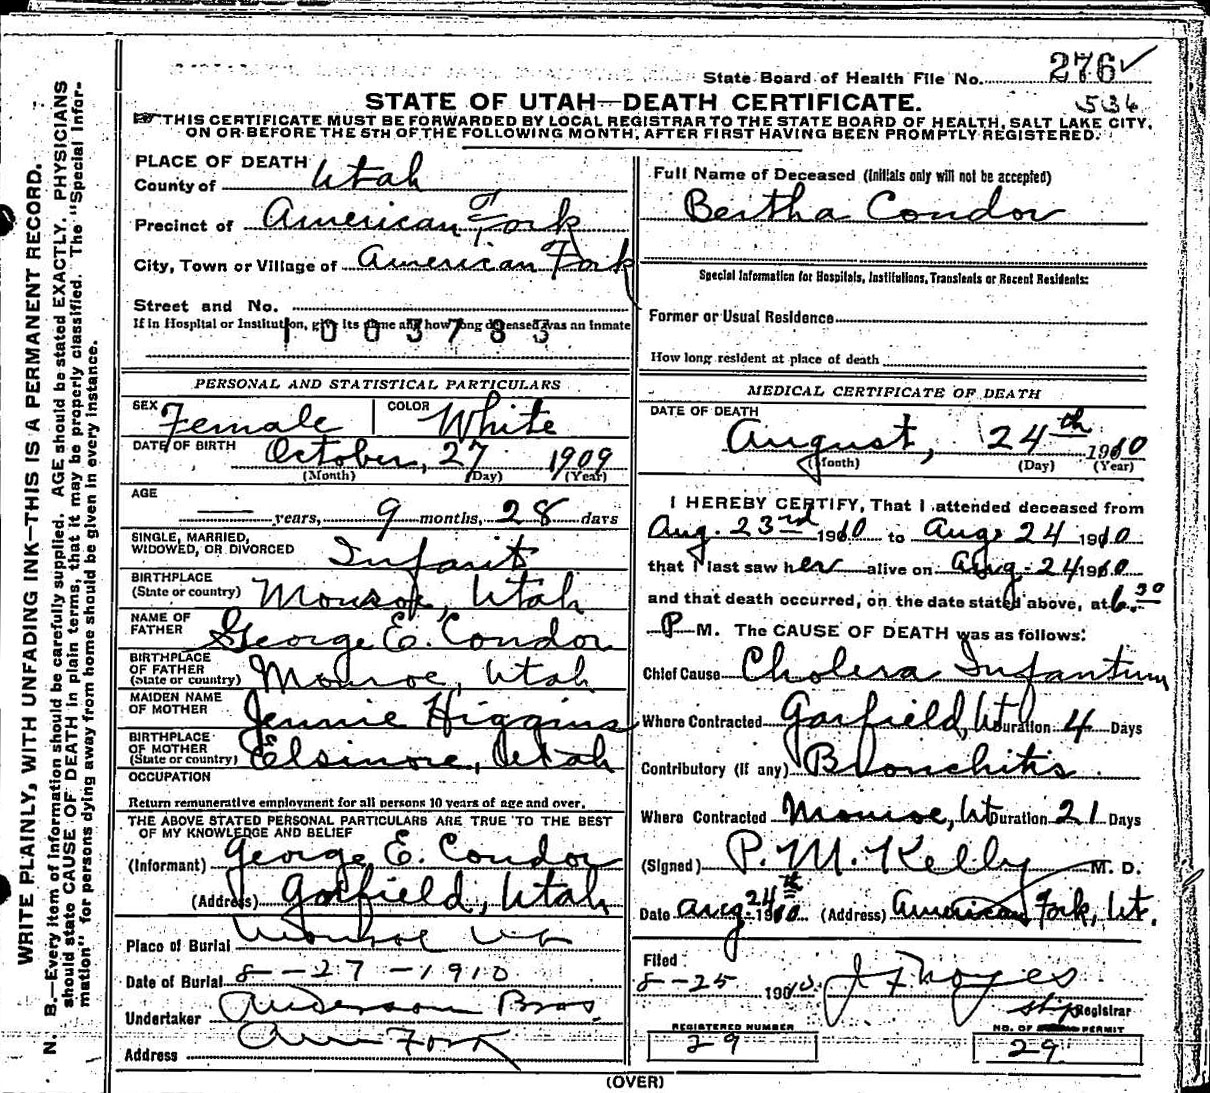 State Board of Health File No. 276 ✓
536
STATE OF UTAH—DEATH CERTIFICATE.
THIS CERTIFICATE MUST BE FORWARDED BY LOCAL REGISTRAR TO THE STATE BOARD OF HEALTH, SALT LAKE CITY,
ON OR BEFORE THE 5TH OF THE FOLLOWING MONTH, AFTER FIRST HAVING BEEN PROMPTLY REGISTERED.
WRITE PLAINLY, WITH UNFADING INK—THIS IS A PERMANENT RECORD.
N. B.—Every item of information should be carefully supplied. AGE should be stated EXACTLY. PHYSICIANS
should state CAUSE OF DEATH in plain terms, that it may be properly classified. The "Special Infor-
mation" for persons dying away from home should be given in every instance.
PLACE OF DEATH
County of Utah
Precinct of American Fork
City, Town or Village of American Fork
Street and No.
If in Hospital or Institution, give its name and how long deceased was an inmate
1003783
PERSONAL AND STATISTICAL PARTICULARS
SEX Female COLOR White
DATE OF BIRTH October, 27 1909
(Month) (Day) (Year)
AGE
— years, 9 months, 28 days
SINGLE, MARRIED,
WIDOWED, OR DIVORCED Infant
BIRTHPLACE
(State or country) Monroe, Utah
NAME OF
FATHER George E. Condor
BIRTHPLACE
OF FATHER
(State or country) Monroe, Utah
MAIDEN NAME
OF MOTHER Jennie Higgins
BIRTHPLACE
OF MOTHER
(State or country) Elsinore, Utah
OCCUPATION
Return remunerative employment for all persons 10 years of age and over.
THE ABOVE STATED PERSONAL PARTICULARS ARE TRUE TO THE BEST
OF MY KNOWLEDGE AND BELIEF
(Informant) George E. Condor
(Address) Garfield, Utah
Place of Burial Monroe Ut
Date of Burial 8--27-1910
Undertaker Anderson Bros.
Address Am Fork
Full Name of Deceased (Initials only will not be accepted)
Bertha Condor
Special Information for Hospitals, Institutions, Transients or Recent Residents:
Former or Usual Residence
How long resident at place of death
MEDICAL CERTIFICATE OF DEATH
DATE OF DEATH
August, 24th 1910
(Month) (Day) (Year)
I HEREBY CERTIFY, That I attended deceased from
Aug. 23rd 1910 to Aug. 24 1910
that I last saw her alive on Aug. 24 1910
and that death occurred, on the date stated above, at 6:30
P M. The CAUSE OF DEATH was as follows:
Chief Cause Cholera Infantum
Where Contracted Garfield, Ut Duration 4 Days
Contributory (if any) Bronchitis
Where Contracted Monroe, Ut Duration 21 Days
(Signed) P. M. Kelly M. D.
Date Aug 24th 1910 (Address) American Fork, Ut.
Filed
8--25 1910. J F Noyes
Registrar
REGISTERED NUMBER
29
NO. OF PERMIT
29
(OVER)